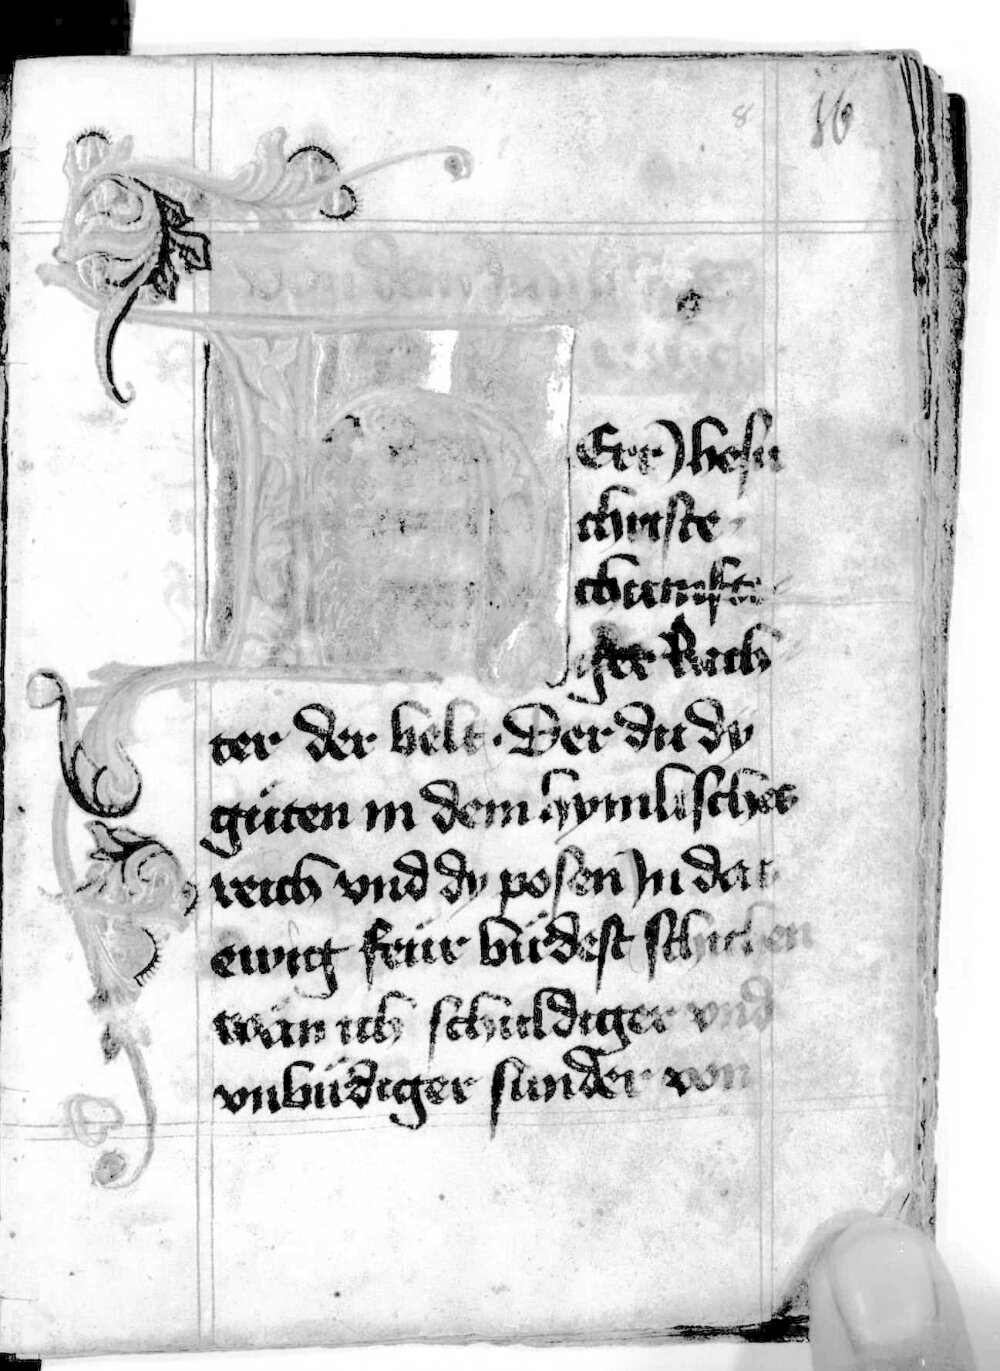 8 16
Err Jhesu
christe
chunfti
ger Rich
ter der belt. Der du dy
güten in dem hymlisches
reich vnd dy posen Jn das
ewig feür bürdest schicken
wan ich schuldiger vnd
vnbürdiger sunder von